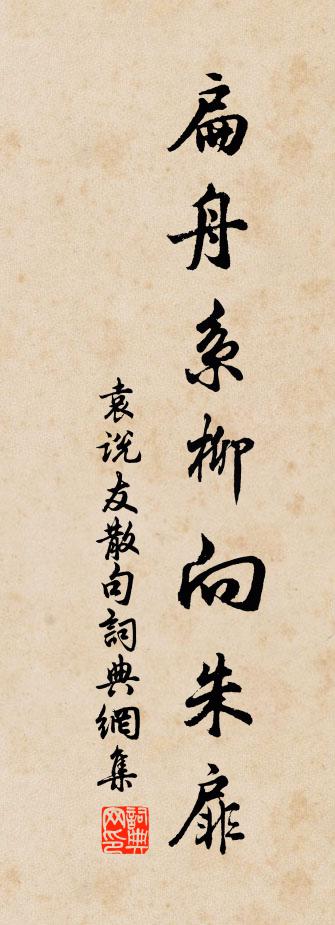 扁舟系柳向朱扉
袁说友散句詞典網集
詞典网印